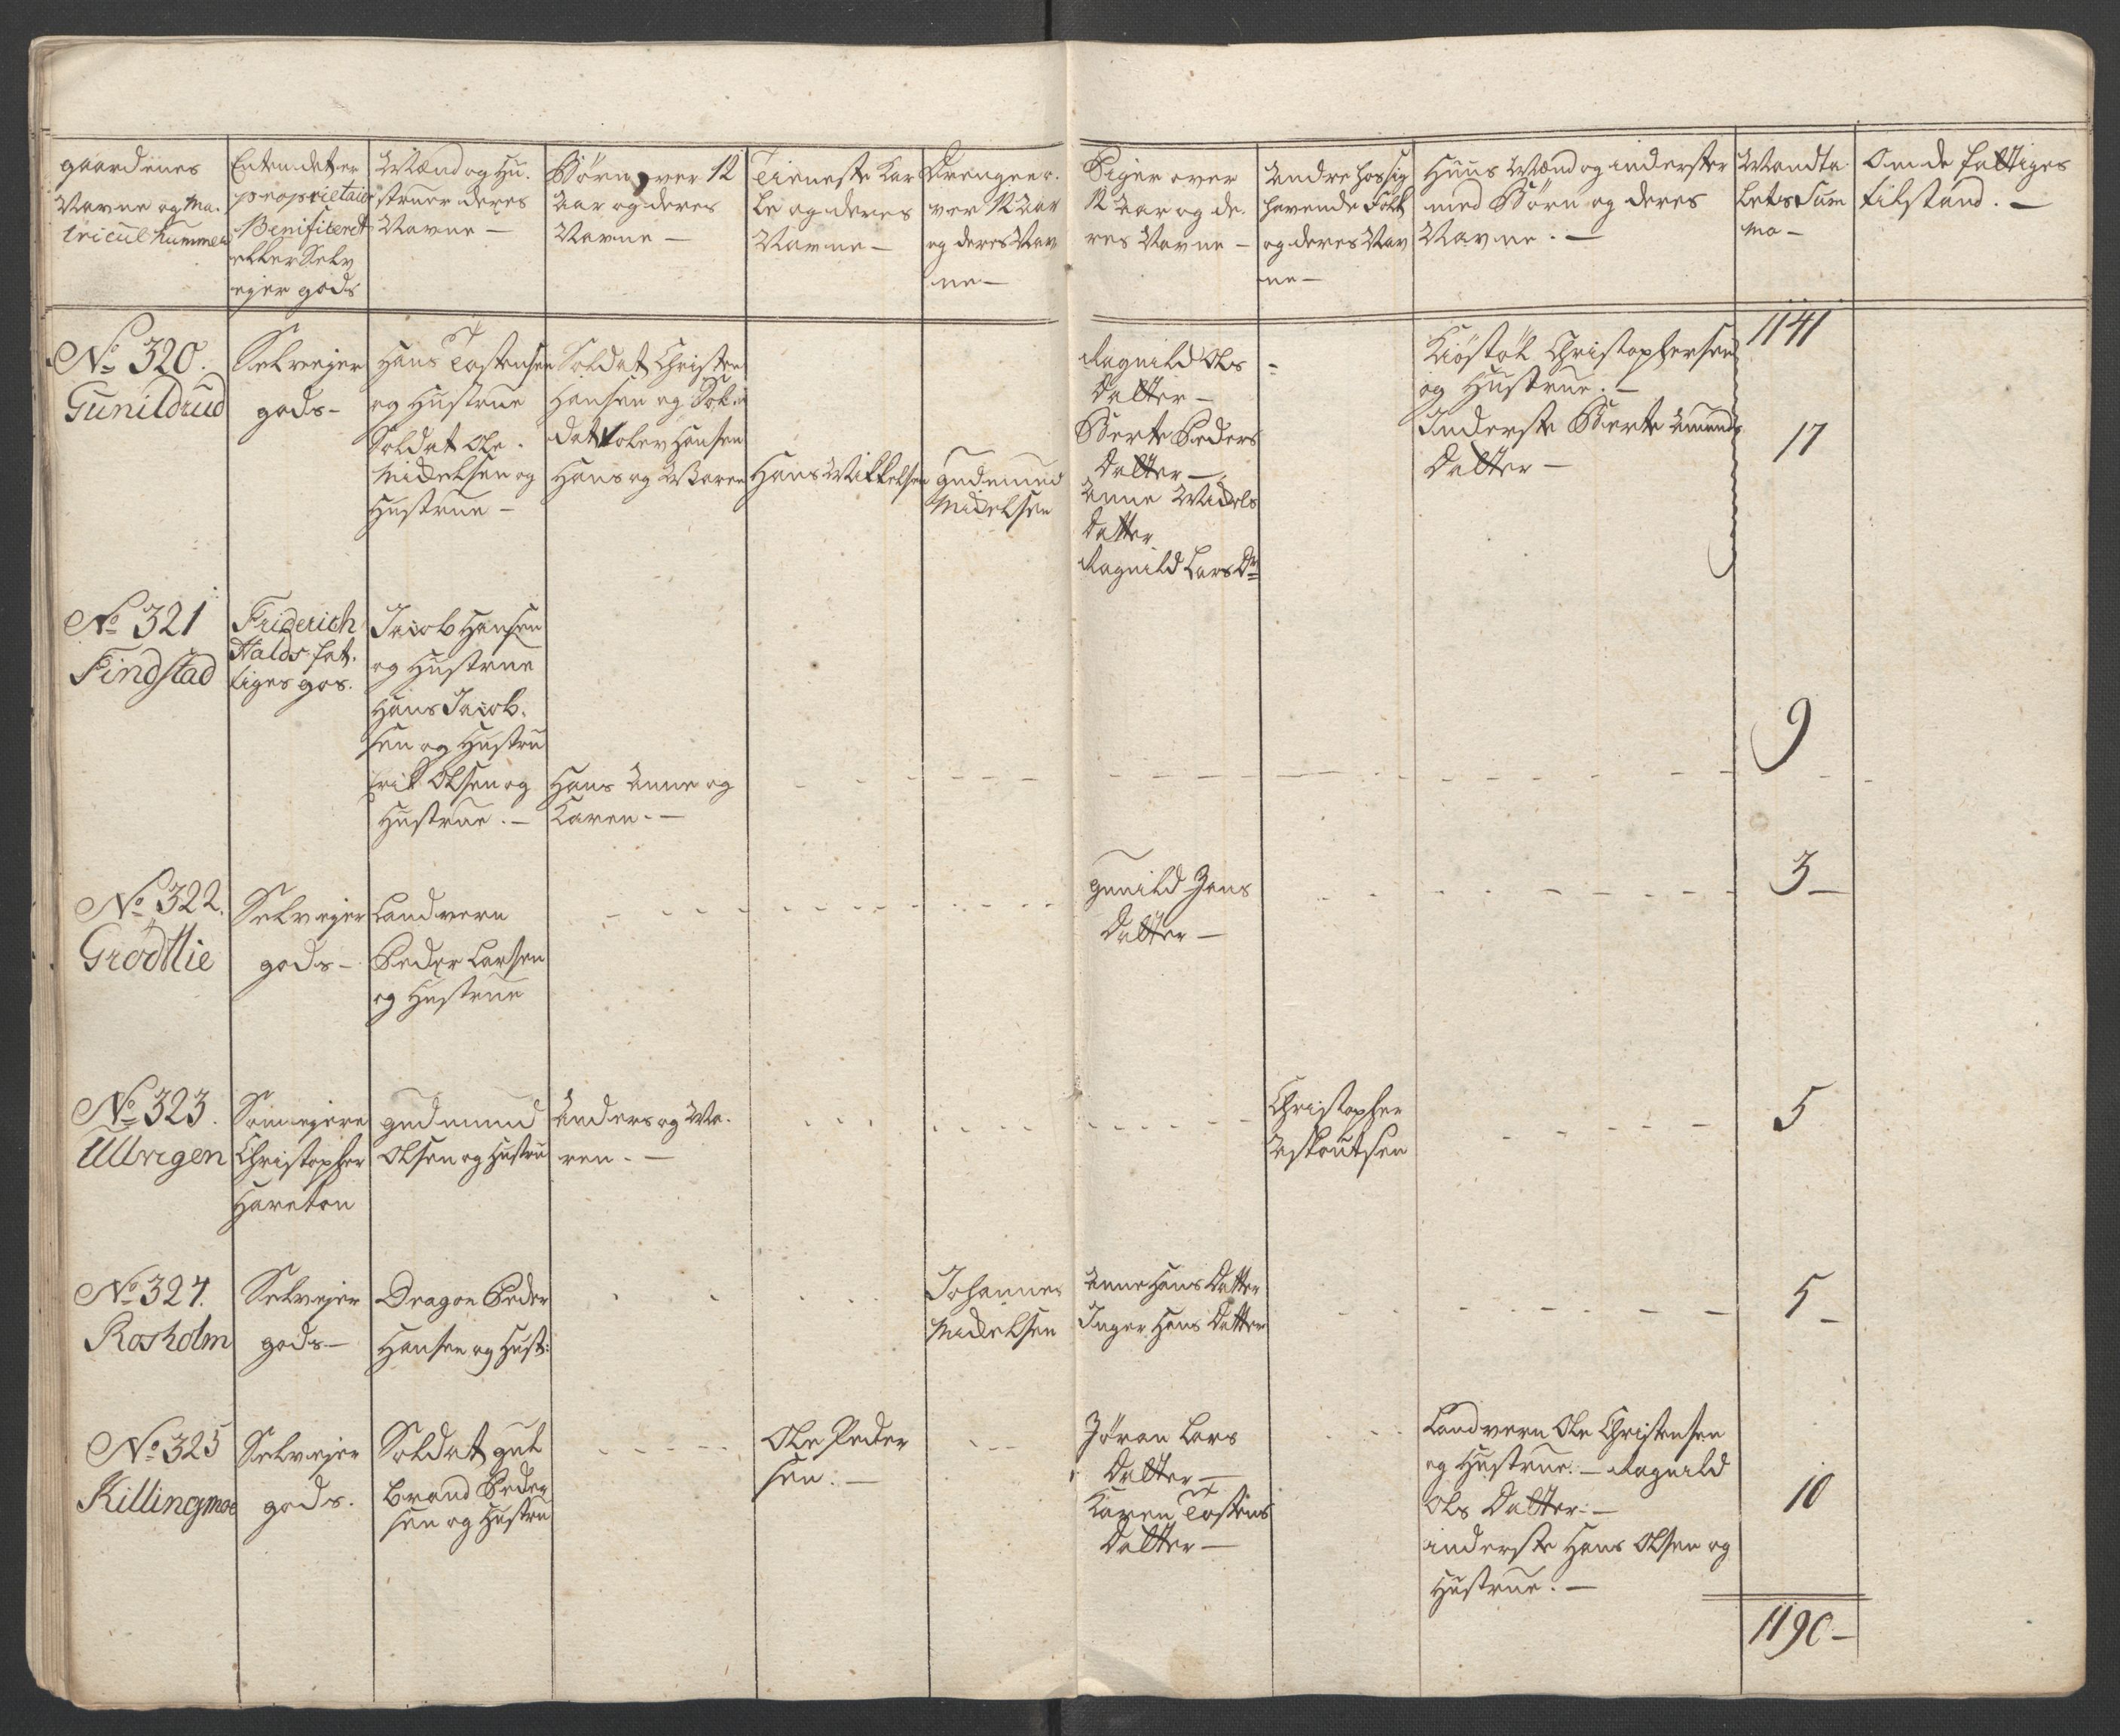 gaardenes
Navne og Ma-
tricul Nummer
Enten det er
proprietair
Benificeret
eller Selv
ejer gods
Mænd og Hu-
struer deres
Navne —
Børn over 12
Aar og deres
Navne —
Tieneste Kar
le og deres
Navne —
Drenge o-
ver 12 Aar
og deres Nav
ne —
Piger over
12 Aar og de-
res Navne —
Andre hos sig
havende Folk
og deres Nav
ne —
Huus Mænd og inderster
med Børn og deres
Navne. —
Mandta
lets Sum
ma —
Om de fattiges
tilstand. —
1141
No 320.
Gunildrud
Selvejer
gods —
Hans Tostensen
og Hustrue
Soldat Ole
Mickelsen og
Hustrue —
Soldat Christen
Hansen og Sol-
dat Tolev Hansen
Hans og Maren
Hans Mikkelsen
Gudmund
Mickelsen
Ragnild Ols
Datter —
Berte Peders
Datter —
Anne Mickels
Datter
Ragnild Lars Dr
Kiøstøl Christophersen
og Hustrue. —
Inderste Berte Amunds
Datter —
17
No 321
Findstad
Friderich
Halds fat-
tiges gos.
Jacob Hansen
og Hustrue
Hans Jacob-
sen og Hustru
Erik Olsen og
Hustrue. —
Hans Anne og
Karen. —
9
No 322.
Grødtlie
Selvejer
gods —
Landvern
Peder Larsen
og Hustrue
Gunild Jens
Datter —
3 —
No 323.
Ullvigen
Som ejere
Christopher
Gudmund
Olsen og Hustru
Anders og Ma-
ren. —
Christopher
5
No 324.
Rosholm
Selvejer
gods —
Dragon Peder
Hansen og Hust:
Johannes
Mickelsen
Anne Hans Datter
Inger Hans Datter
5 —
No 325
Killingmoe
Selvejer
gods.
Soldat Gul
brand Peder
sen og Hustru
Ole Peder
sen. —
Jøran Lars
Datter —
Karen Tostens
Datter —
Landvern Ole Christensen
og Hustrue. — Ragnild
Ols Datter. —
inderste Hans Olsen og
Hustrue. —
10
1190 —